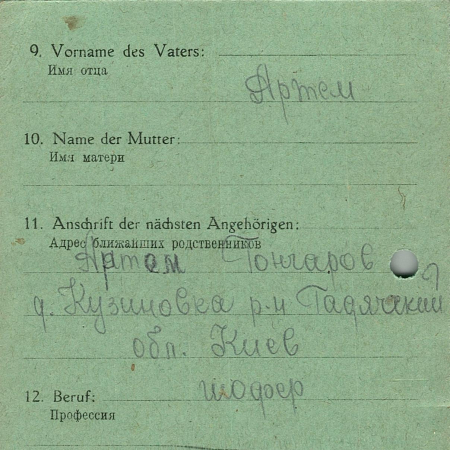 9. Vorname des Vaters:
Имя отца
Артем
10. Name der Mutter:
Имя матери
11. Anschrift der nächsten Angehörigen:
Адрес ближайших родственников
Артем Гончаров
д. Кузиновка р-н Гадячский
обл. Киев
12. Beruf: шофер
Профессия